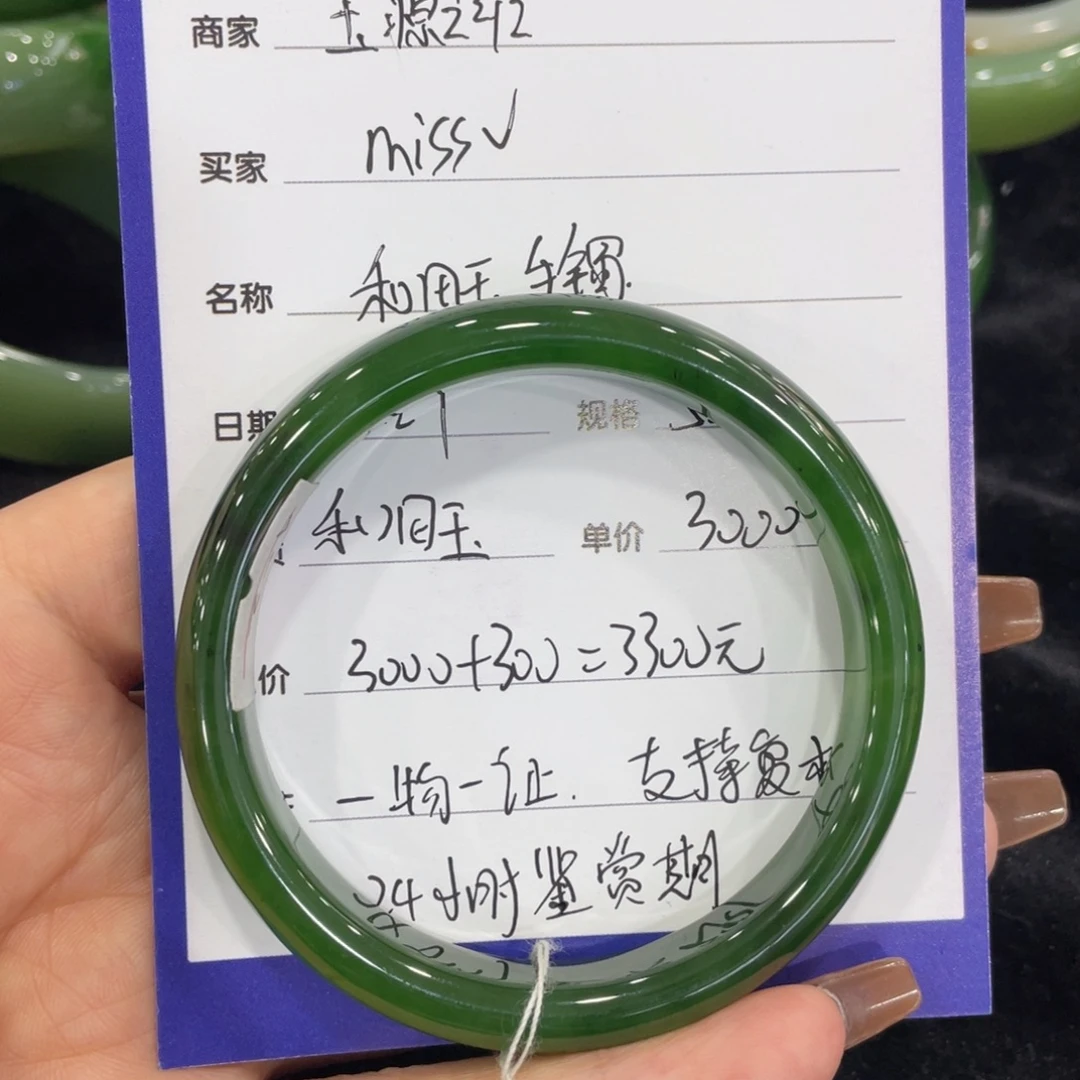 商家 玉源242
买家 missv
名称 和田玉手镯
日期 21 规格
和田玉 单价 3000
价 3000+300=3300元
一物一证. 支持复检
24小时鉴赏期